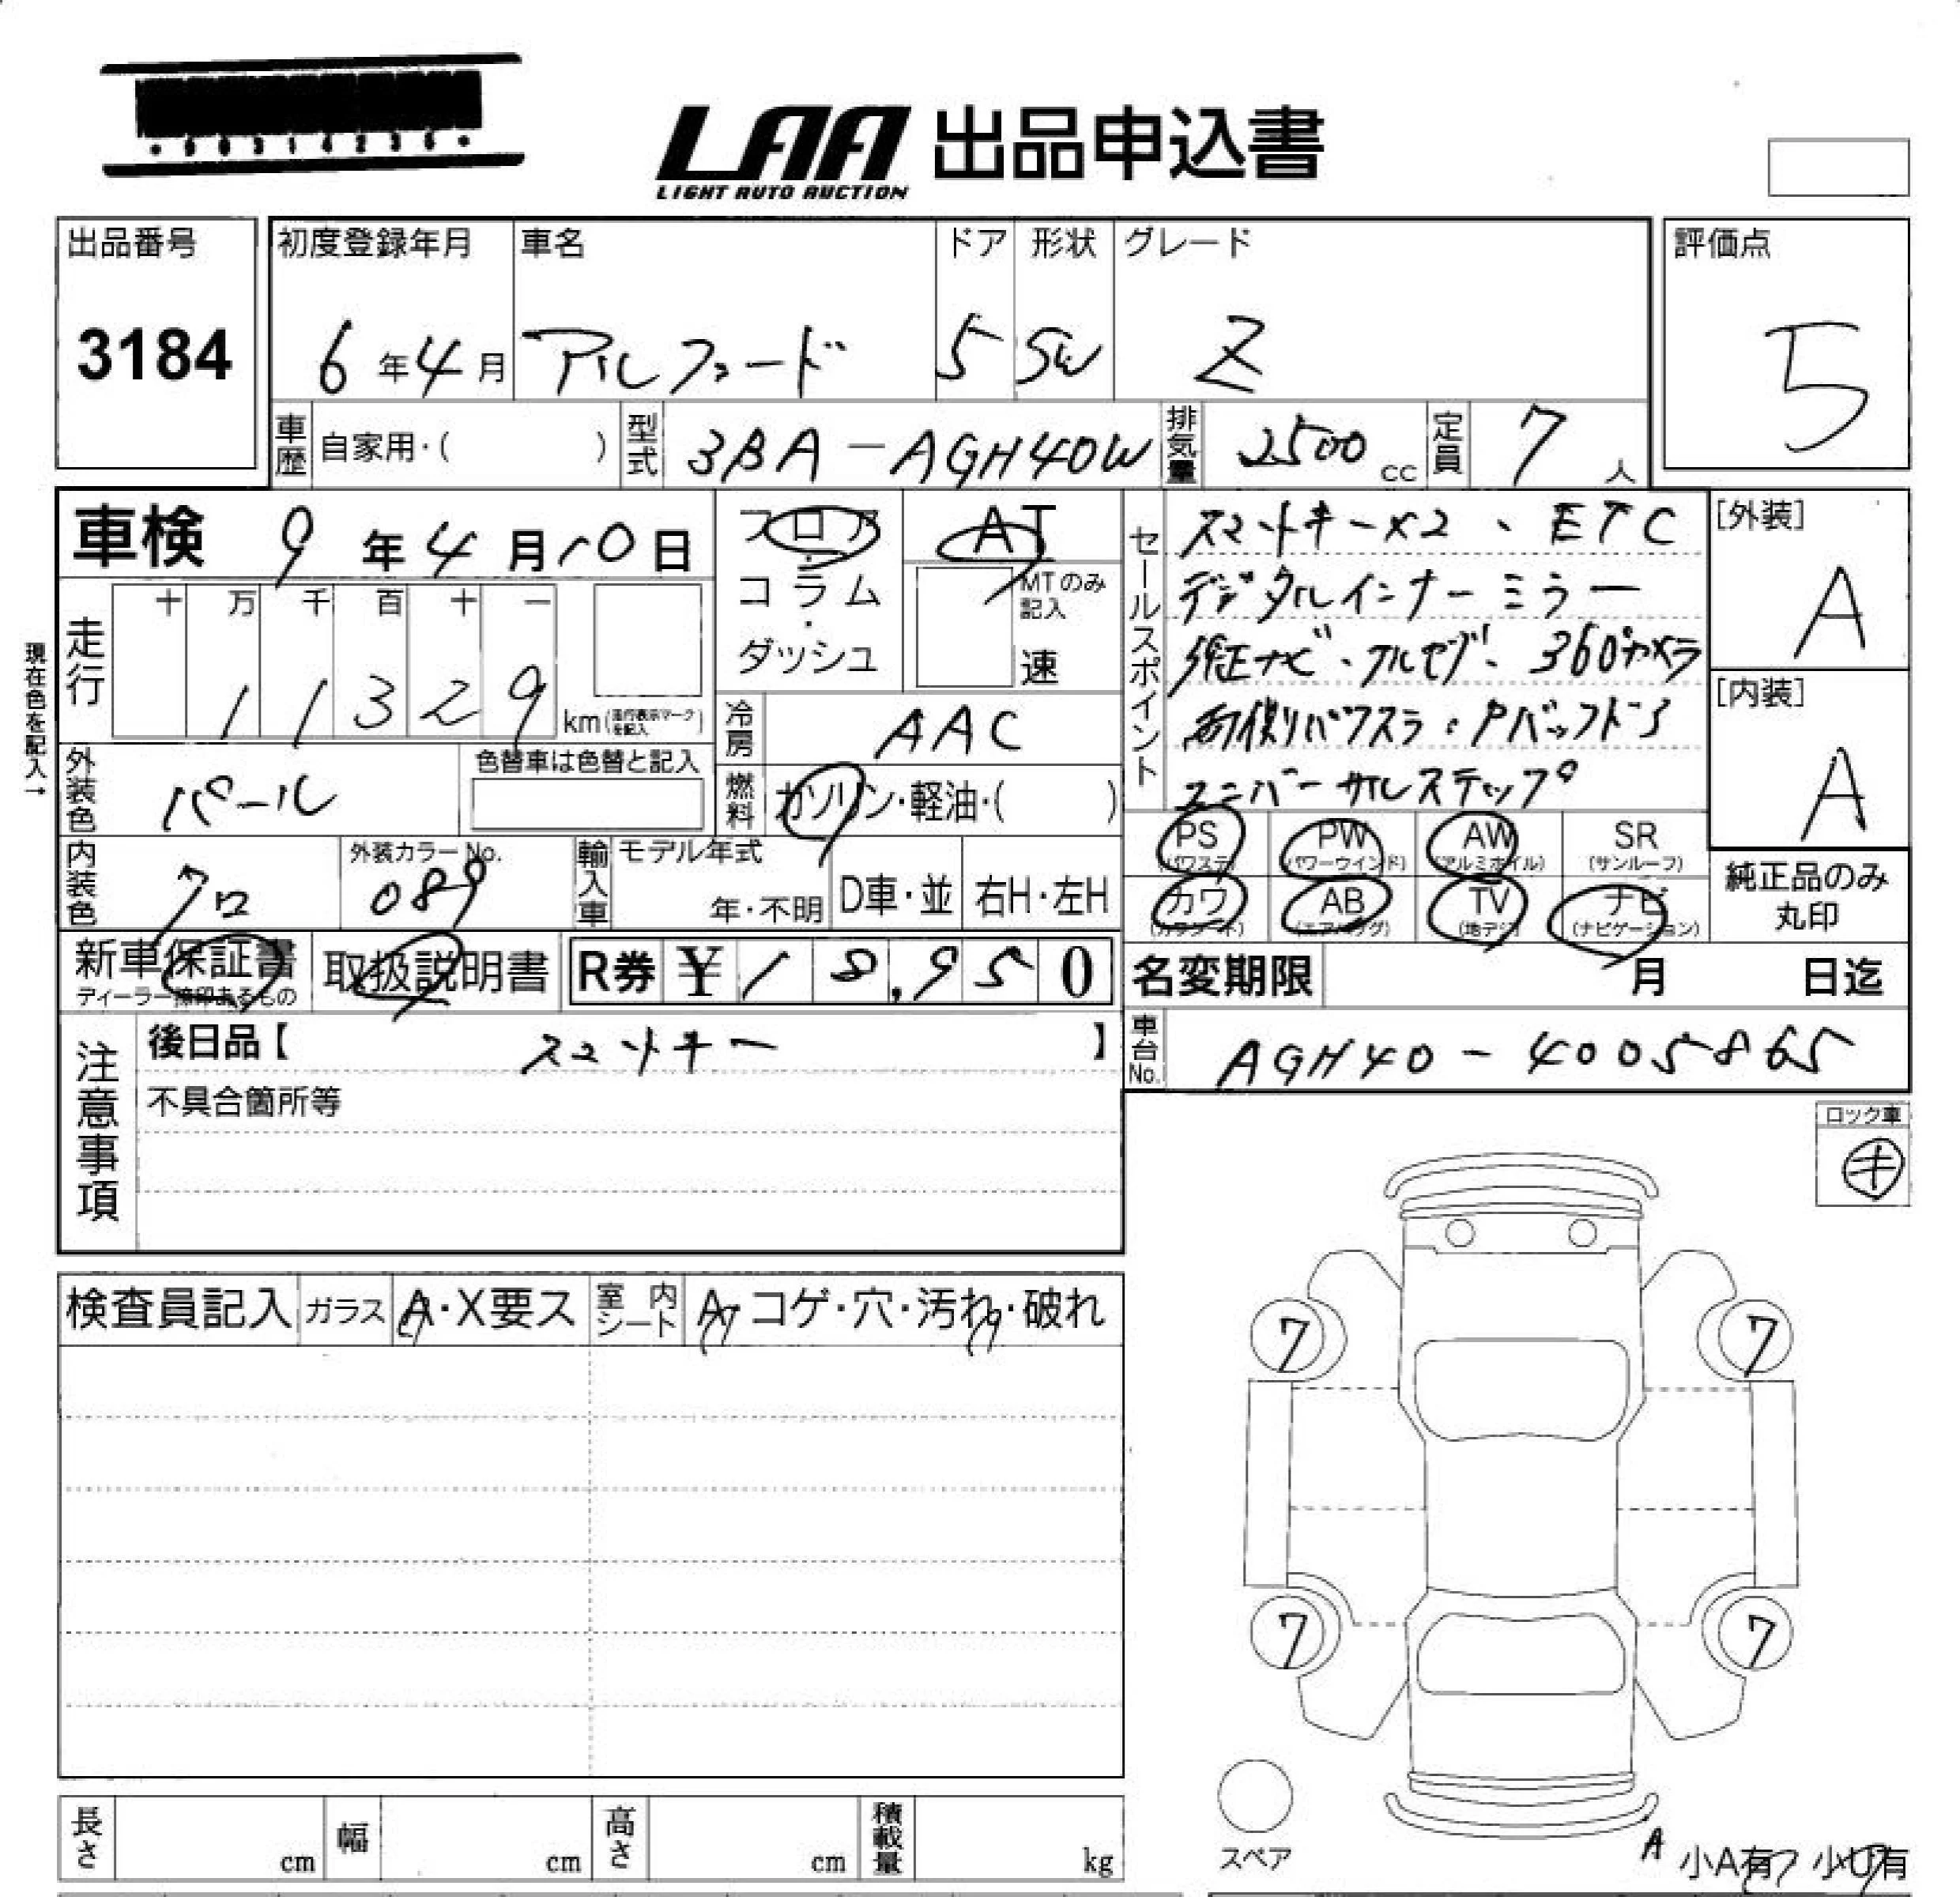 LAA 出品申込書
LIGHT AUTO AUCTION
出品番号
3184
初度登録年月
6年4月
車名
アルファード
ドア
5
形状
SW
グレード
Z
評価点
5
車歴 自家用・( )
型式 3BA-AGH40W
排気量 2500 cc
定員 7 人
車検 9年4月10日
フロア・コラム・ダッシュ
AT
MTのみ記入
速
セールスポイント
スマートキー×2、ETC
デジタルインナーミラー
純正ナビ、フルセグ、360°カメラ
両側パワスラ、Pバックドア
ユニバーサルステップ
[外装]
A
[内装]
A
現在色を記入→
走行
十 万 千 百 十 一
1 1 3 2 9 km(走行表示マークを記入)
冷房 AAC
燃料 ガソリン・軽油・( )
外装色 パール
色替車は色替と記入
内装色 クロ
外装カラーNo.
089
輸入車 モデル年式
年・不明
D車・並
右H・左H
PS (パワステ)
PW (パワーウインド)
AW (アルミホイル)
SR (サンルーフ)
カワ (カワシート)
AB (エアバッグ)
TV (地デジ)
ナビ (ナビゲーション)
純正品のみ丸印
新車保証書
ディーラー捺印あるもの
取扱説明書
R券 ¥18,950
名変期限 月 日迄
注意事項
後日品【 スマートキー 】
不具合箇所等
車台No. AGH40-4005865
ロック車
キ
検査員記入
ガラス A・X要ス
室内シート A・コゲ・穴・汚れ・破れ
7 7
7 7
スペア
A
小A有 小U有
長さ cm
幅 cm
高さ cm
積載量 kg